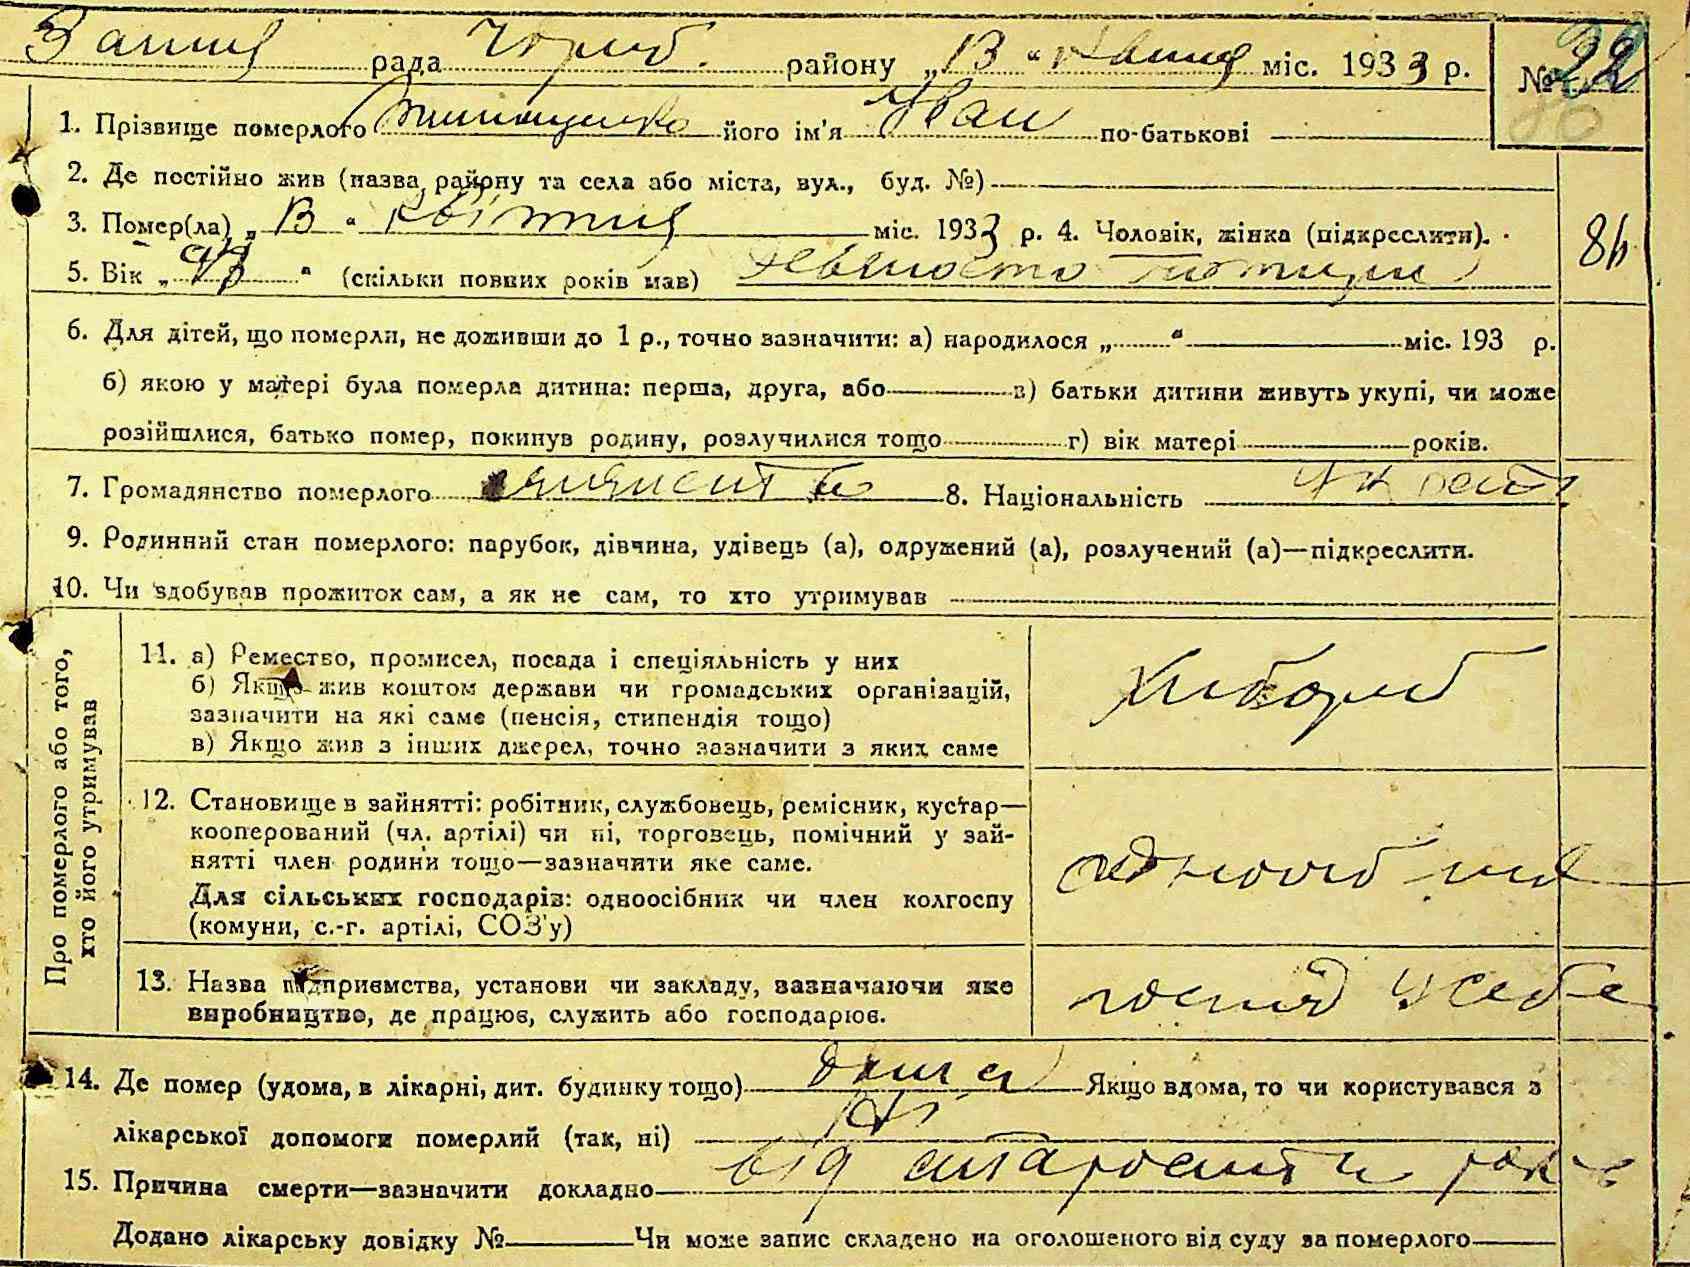 рада район у „ В “ міс. 1933 р. № 22
1. Прізвище померлого його ім'я Іван по-батькові
2. Де постійно жив (назва району та села або міста, вул., буд. №)
3. Помер(ла) „ В “ квітня міс. 1933 р. 4. Чоловік, жінка (підкреслити).
84
5. Вік „ “ (скільки повних років мав) девяносто
6. Для дітей, що померли, не доживши до 1 р., точно зазначити: а) народилося „ “ міс. 193 р.
б) якою у матері була померла дитина: перша, друга, або в) батьки дитини живуть укупі, чи може
розійшлися, батько помер, покинув родину, розлучилися тощо г) вік матері років.
7. Громадянство померлого 8. Національність
9. Родинний стан померлого: парубок, дівчина, удівець (а), одружений (а), розлучений (а)—підкреслити.
10. Чи здобував прожиток сам, а як не сам, то хто утримував
Про померлого або того,
хто його утримував
11. а) Ремество, промисел, посада і спеціяльність у них
б) Якщо жив коштом держави чи громадських організацій,
зазначити на які саме (пенсія, стипендія тощо)
в) Якщо жив з інших джерел, точно зазначити з яких саме
Хлібороб
12. Становище в зайнятті: робітник, службовець, ремісник, кустар—
кооперований (чл. артілі) чи ні, торговець, помічний у зай-
нятті член родини тощо—зазначити яке саме.
Для сільських господарів: одноосібник чи член колгоспу
(комуни, с.-г. артілі, СОЗ'у)
13. Назва підприємства, установи чи закладу, зазначаючи яке
виробництво, де працює, служить або господарює.
у себе
14. Де помер (удома, в лікарні, дит. будинку тощо) дома Якщо вдома, то чи користувався з
лікарської допомоги померлий (так, ні) ні
15. Причина смерти—зазначити докладно від старости
Додано лікарську довідку № Чи може запис складено на оголошеного від суду за померлого